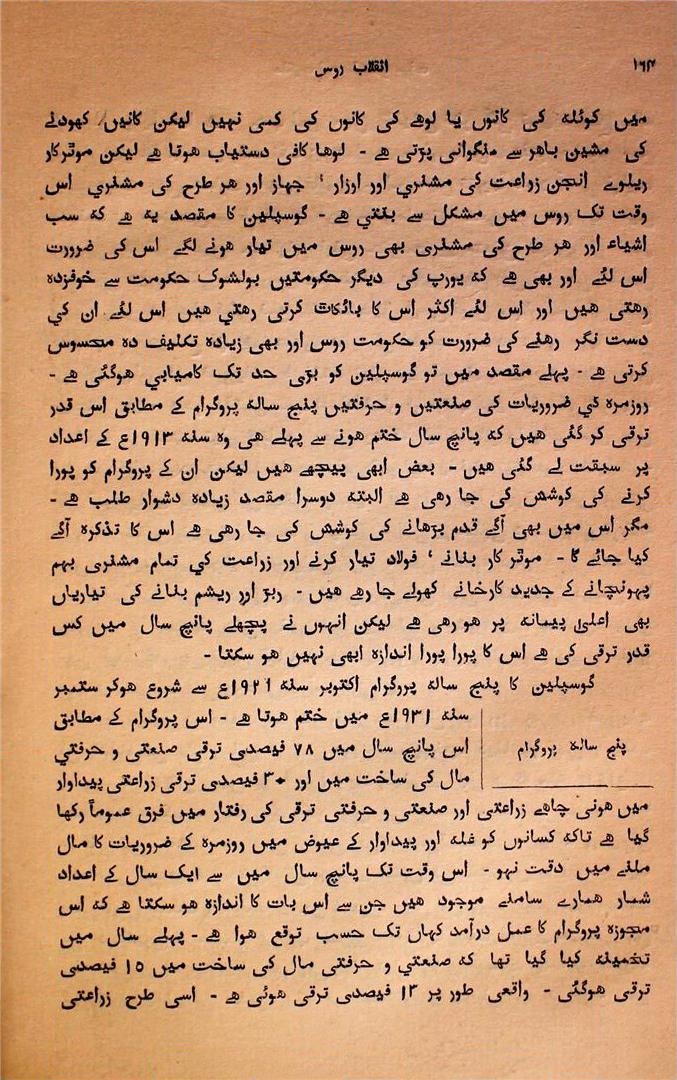 ۱۶۴
انقلاب روس
میں کوئلہ کی کانوں یا لوھے کی کانوں کی کمی نہیں لیکن کانیں کھودنے
کی مشین باھر سے منگوانی پڑتی ھے - لوھا کافی دستیاب ھوتا ھے لیکن موٹرکار
ریلوے انجن زراعت کی مشنری اور اوزار ‘ جہاز اور ھر طرح کی مشنری اس
وقت تک روس میں مشکل سے بنتی ھے - گوسپلین کا مقصد یہ ھے کہ سب
اشیاء اور ھر طرح کی مشنری بھی روس میں تیار ھونے لگے اس کی ضرورت
اس لئے اور بھی ھے کہ یورپ کی دیگر حکومتیں بولشوک حکومت سے خوفزدہ
رھتی ھیں اور اس لئے اکثر اس کا بائکاٹ کرتی رھتی ھیں اس لئے ان کی
دست نگر رھنے کی ضرورت کو حکومت روس اور بھی زیادہ تکلیف دہ محسوس
کرتی ھے - پہلے مقصد میں تو گوسپلین کو بڑی حد تک کامیابی ھوگئی ھے -
روزمرہ کی ضروریات کی صنعتیں و حرفتیں پنچ سالہ پروگرام کے مطابق اس قدر
ترقی کر گئی ھیں کہ پانچ سال ختم ھونے سے پہلے ھی وہ سنہ ۱۹۱۳ع کے اعداد
پر سبقت لے گئی ھیں - بعض ابھی پیچھے ھیں لیکن ان کے پروگرام کو پورا
کرنے کی کوشش کی جا رھی ھے البتہ دوسرا مقصد زیادہ دشوار طلب ھے -
مگر اس میں بھی آگے قدم بڑھانے کی کوشش کی جا رھی ھے اس کا تذکرہ آگے
کیا جائے گا - موٹر کار بنانے ‘ فولاد تیار کرنے اور زراعت کی تمام مشنری بہم
پہونچانے کے جدید کارخانے کھولے جا رھے ھیں - ربڑ اور ریشم بنانے کی تیاریاں
بھی اعلیٰ پیمانہ پر ھو رھی ھے لیکن انہوں نے پچھلے پانچ سال میں کس
قدر ترقی کی ھے اس کا پورا پورا اندازہ ابھی نہیں ھو سکتا -
گوسپلین کا پنچ سالہ پروگرام اکتوبر سنہ ۱۹۲۶ع سے شروع ھوکر ستمبر
سنہ ۱۹۳۱ع میں ختم ھوتا ھے - اس پروگرام کے مطابق
پنچ سالہ پروگرام
اس پانچ سال میں ۷۸ فیصدی ترقی صنعتی و حرفتی
مال کی ساخت میں اور ۳۰ فیصدی ترقی زراعتی پیداوار
میں ھونی چاھے زراعتی اور صنعتی و حرفتی ترقی کی رفتار میں فرق عموماً رکھا
گیا ھے تاکہ کسانوں کو غلہ اور پیداوار کے عیوض میں روزمرہ کے ضروریات کا مال
ملنے میں دقت نہو - اس وقت تک پانچ سال میں سے ایک سال کے اعداد
شمار ھمارے سامنے موجود ھیں جن سے اس بات کا اندازہ ھو سکتا ھے کہ اس
مجوزہ پروگرام کا عمل درآمد کہاں تک حسب توقع ھوا ھے - پہلے سال میں
تخمینہ کیا گیا تھا کہ صنعتی و حرفتی مال کی ساخت میں ۱۵ فیصدی
ترقی ھوگئی - واقعی طور پر ۱۳ فیصدی ترقی ھوئی ھے - اسی طرح زراعتی